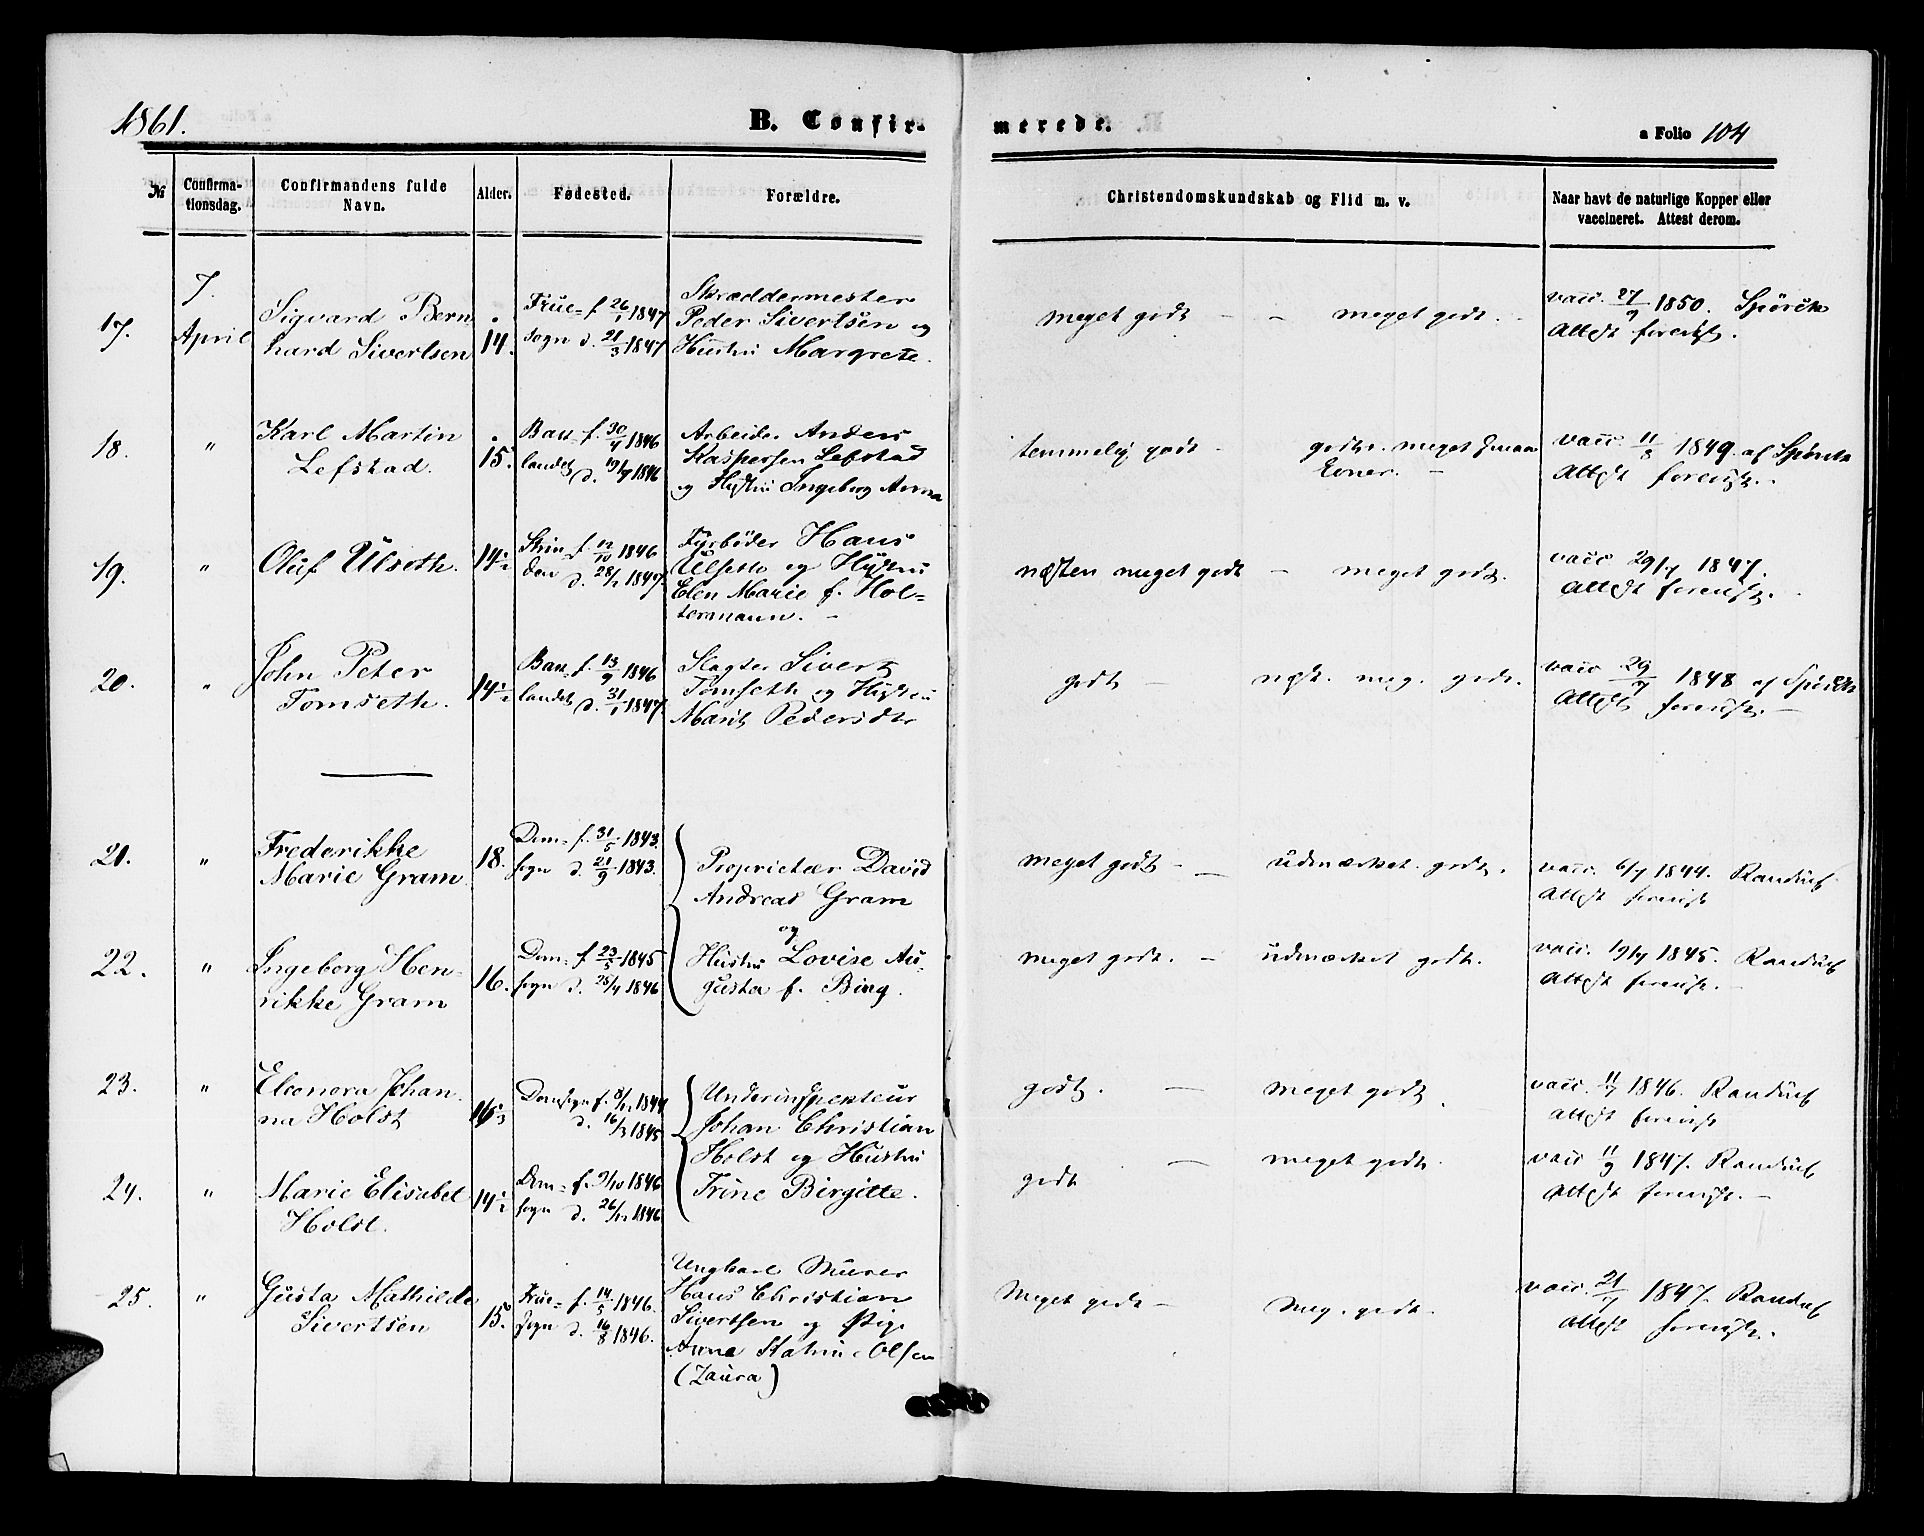 1861.
B. Confir-
merede.
a Folio 104
№
Confirma-
tionsdag.
Confirmandens fulde
Navn.
Alder.
Fødested.
Forældre.
Christendomskundskab og Flid m. v.
Naar havt de naturlige Kopper eller
vaccineret. Attest derom.
17.
7.
April
Sigvard Bern
hard Sivertsen
14.
Frue- f. 26/1 1847
Sogn d. 21/3 1847
Skræddermester
Peder Sivertsen og
Hustru Margrete.
meget godt - - meget godt.
vacc. 27/9 1850.
Attest forevist.
18.
"
Karl Martin
Lefstad.
15.
Bak f. 30/4 1846
landet d. 19/7 1846
Arbeider Anders
Kaspersen Lefstad
og Hustru Ingeborg Anna
temmelig godt - godt. meget smaa
Evner. -
vacc 11/8 1849. af
Attest forevist.
19.
"
Oluf Ulseth.
14 1/2
Strin
den
f. 12/10 1846
d. 28/2 1847.
Fyrbøder Hans
Ulseth og Hustru
Elen Marie f. Hol-
termann. -
næsten meget godt - meget godt.
vacc 29/7 1847.
Attest forevist.
20.
"
John Peter
Tomseth.
14 1/2
Bak f. 13/9 1846
landet d. 31/1 1847.
Slagter Sivert
Tomseth og Hustru
Marit Pedersdtr
godt - næst. meg. godt.
vacc 29/7 1848 af
Attest forevist. -
21.
"
Frederikke
Marie Gram
18.
Dom- f. 31/5 1843.
sogn d. 21/9 1843.
Proprietær David
Andreas Gram
og
Hustru Lovise Au-
gusta f. Bing.
meget godt - - udmærket godt.
vacc. 6/7 1844. Randulf
Attest forevist
22.
"
Ingeborg Hen-
rikke Gram
16.
Dom- f. 23/5 1845
sogn d. 25/4 1846
meget godt. - udmærket godt.
vacc. 19/7 1845. Randulf
Attest forevist. -
23.
"
Eleonora Johan-
na Holst
Domsogn f. 8/12 1844
d. 16/3 1845
Underinspekteur
Johan Christian
Holst og Hustru
Trine Birgitte.
godt. - meget godt.
vacc. 1846. Randulf
Attest forevist
24.
"
Marie Elisabet
Holst.
14 1/2
Dom- f. 9/10 1846
sogn d. 26/12 1846
godt - meget godt.
vacc 11/9 1847. Randulf
Attest forevist. -
25.
"
Gusta Mathilde
Sivertsen
15.
Frue- f. 14/5 1846.
sogn d. 16/8 1846.
Ungkarl Murer
Hans Christian
Sivertsen og Pige
Anna Katrine Olsen
Meget godt - meg. godt.
vacc. 21/7 1847. Randulf
Attest forevist.